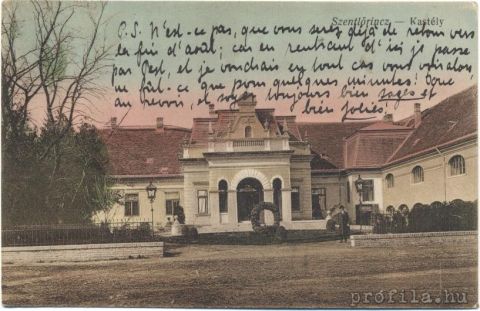 Szentlőrincz — Kastély
P.S. N'est-ce pas, que vous serez déjà de retour vers
la fin d'août; car en rentrant d'ici je passe
par Pest, et je voudrais en tout cas vous voir
ne fût-ce que pour quelques minutes! Donc
au revoir, et soyez toujours bien sages et
bien jolies
prófila.hu